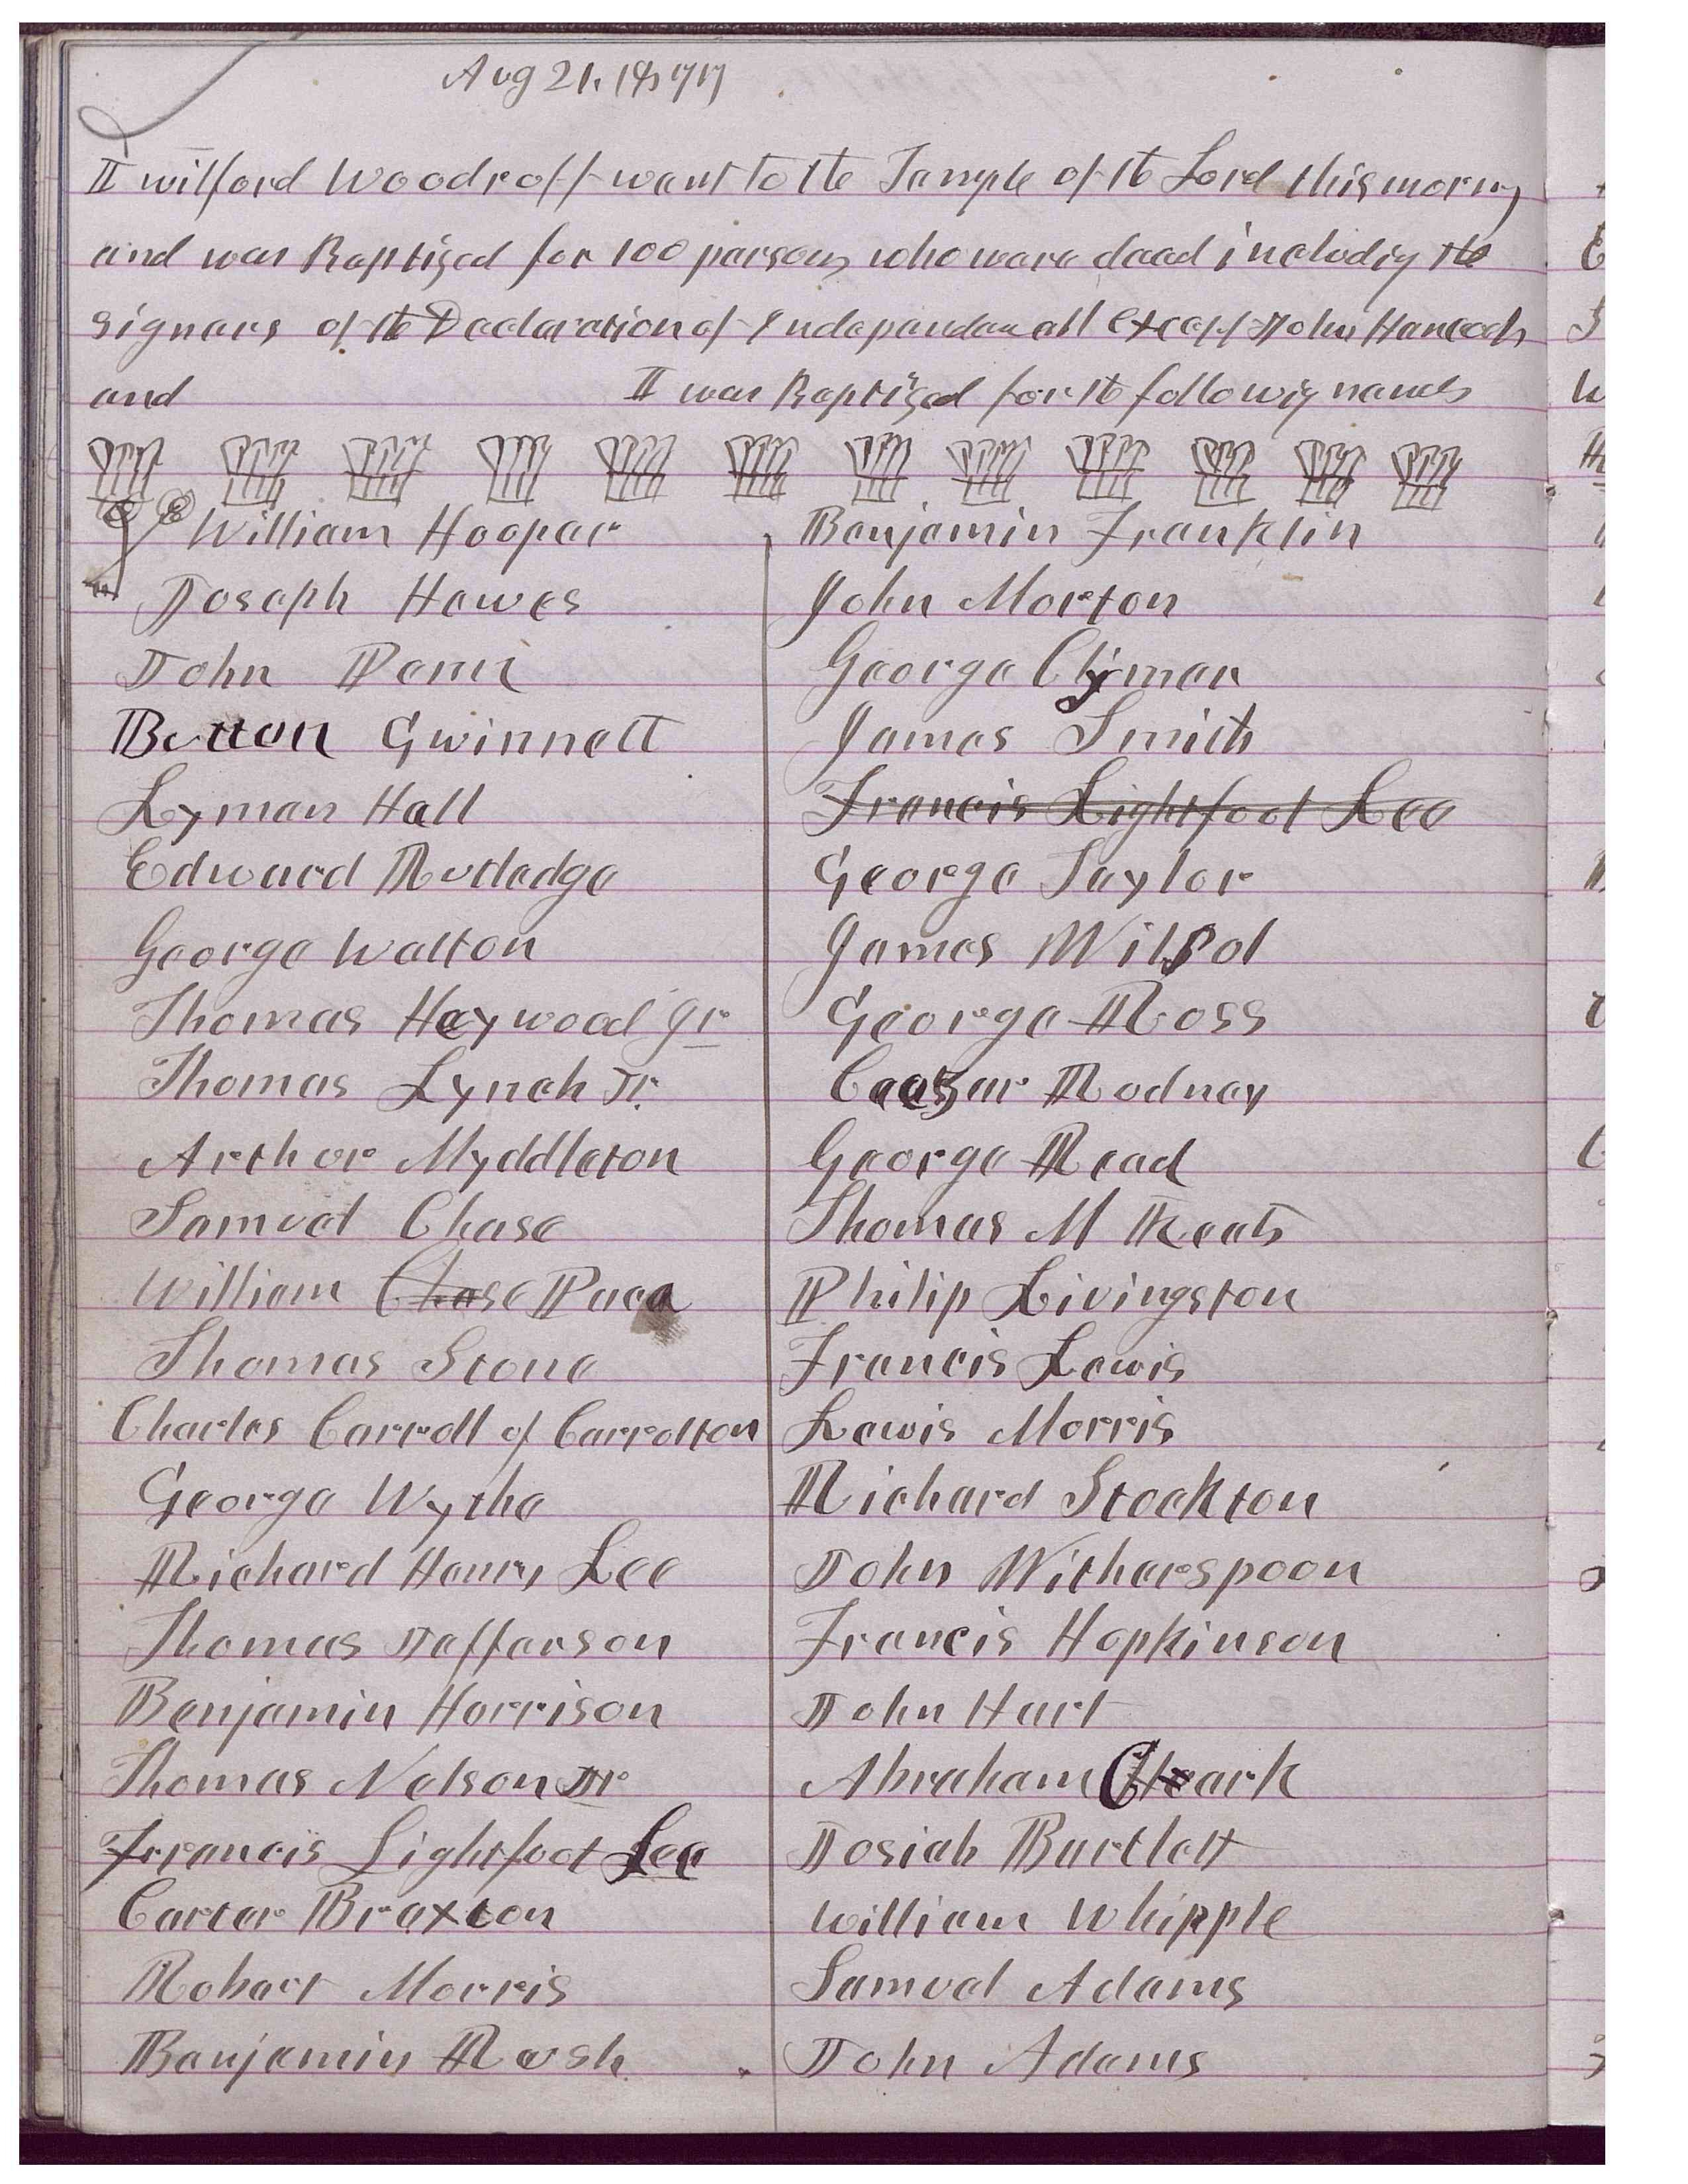 Aug 21, 1877
I wilford Woodroff went to the Temple of the Lord this morning
and was Baptized for 100 persons who were dead including the
signers of the Declaration of Independance all except John Hancock
and I was Baptized for the following names
William Hooper
Joseph Hewes
John Penn
Button Gwinnett
Lyman Hall
Edward Rutledge
George Walton
Thomas Heywood Jr
Thomas Lynch Jr.
Arthor Myddleton
Samuel Chase
William Chase Paca
Thomas Stone
Charles Carroll of Carrollton
George Wythe
Richard Henry Lee
Thomas Jefferson
Benjamin Harrison
Thomas Nelson Jr
Francis Lightfoot Lee
Carter Braxton
Robert Morris
Benjamin Rush
Benjamin Franklin
John Morton
George Clymer
James Smith
Francis Lightfoot Lee
George Taylor
James Wilson
George Ross
Caesar Rodney
George Read
Thomas M Kean
Philip Livingston
Francis Lewis
Lewis Morris
Richard Stockton
John Witherspoon
Francis Hopkinson
John Hart
Abraham Clark
Josiah Bartlett
William Whipple
Samuel Adams
John Adams